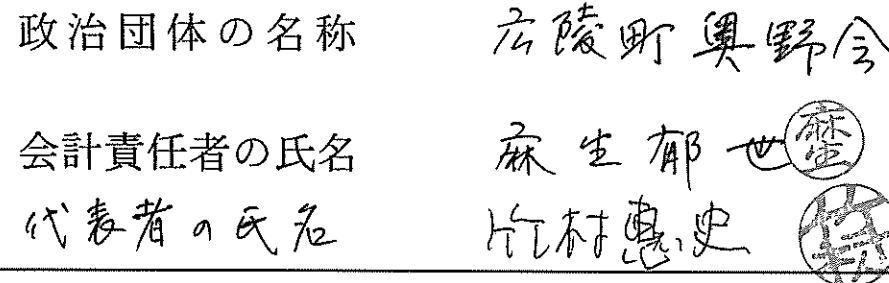 政治団体の名称 広陵町奥野会
会計責任者の氏名 麻生郁世 麻生
代表者の氏名 竹村恵史 竹村